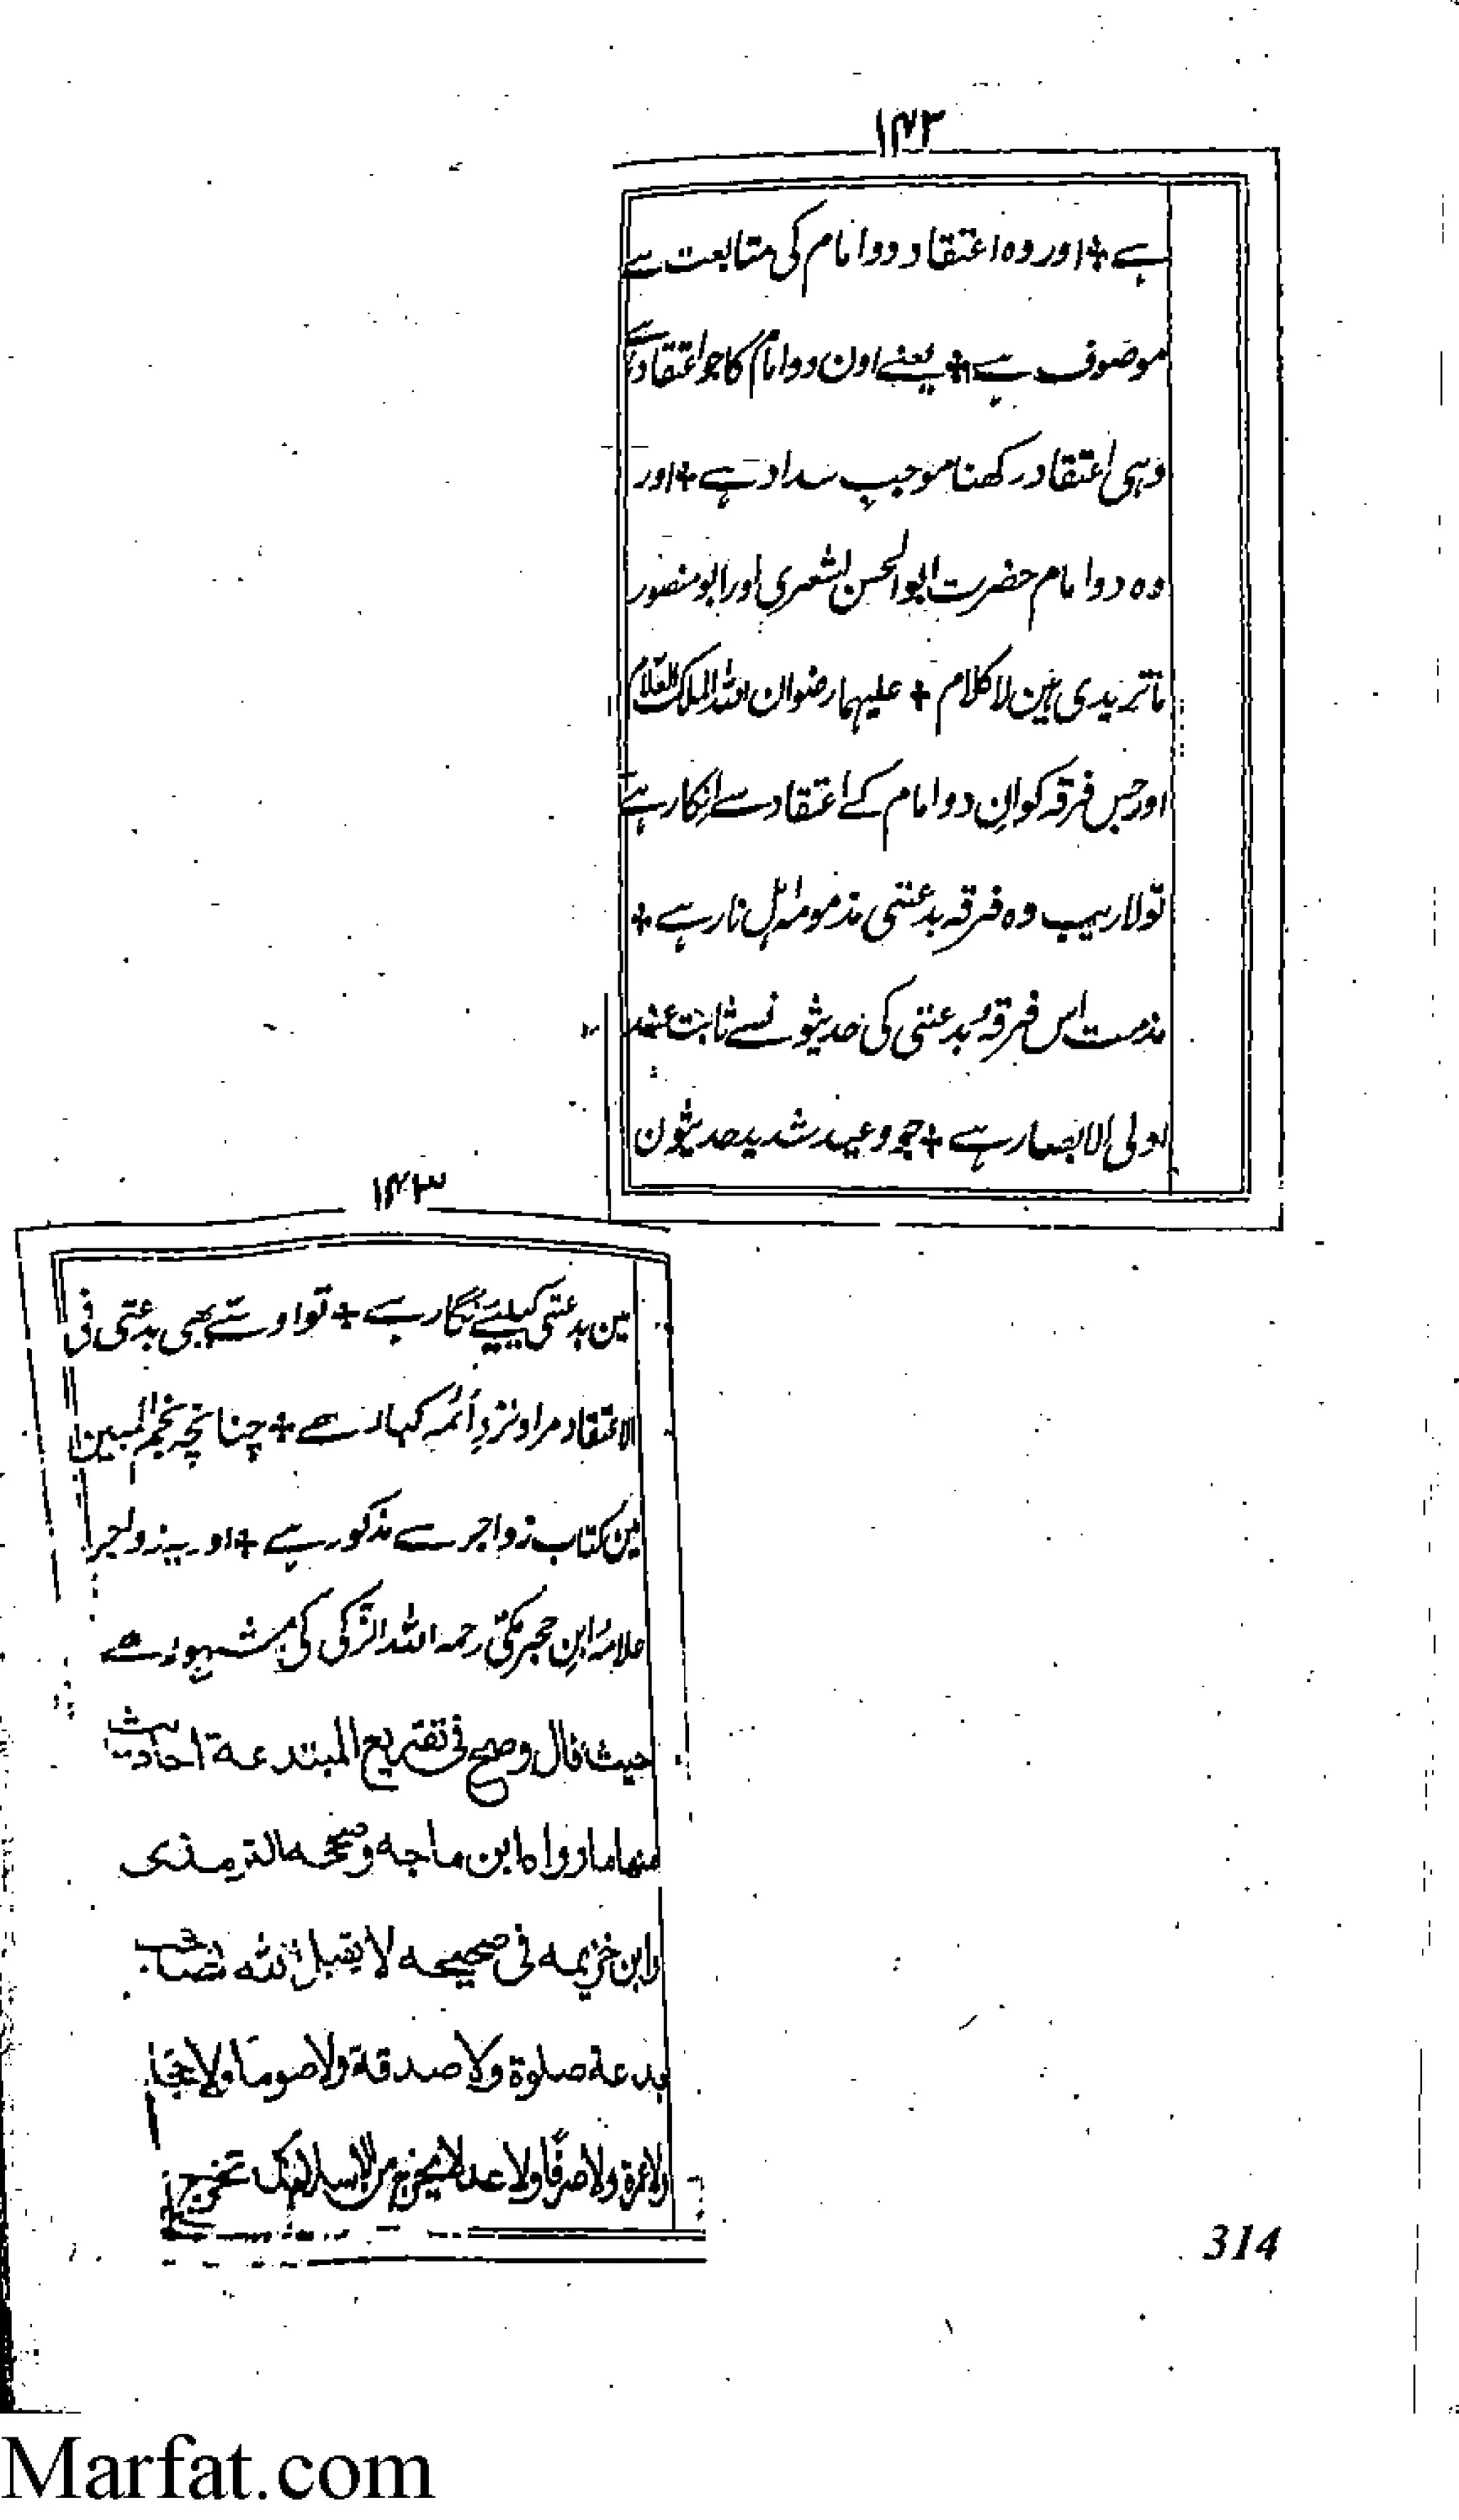 ۱۴۲
ہے + اور وہ اعتقاد دو امام کی متابعت سے
موصوف ہے + یعنے اون دو امام کا جو اعتقاد ہے
وہی اعتقاد رکھنا موجب سداد ہے + اور
وہ دو امام حضرت ابو الحسن اشعری اور ابو منصور
ماتریدی ہین لا کلام + علیہما رضوان اللہ الملک العلام
اور جس فرقہ کو ان دو امام کے اعتقاد سے انکار ہے
تو لاریب وہ فرقہ بدعتی مذمومہ اہل نار ہے +
مذمت اس فرقۂ بدعتی کی حدیثونسے ثابت عند
اولی الابصار ہے + جو وعید شدید حدیثون
۱۴۳
مین بدعتی کیلیے نگار ہے + تو اوسے بھی بدعتی فی
الاعتقاد مراد نزد ائمہ کبار ہے + چنانچہ نجم المبین
مین کتاب زواجر سے مذکور ہے + اور یہ زواجر
علامہ ابن حجر مکی رحمہ اللہ الزکی کی مشہور ہے
حیث قال وصح فی تقریع المبتدعة احادیث
منها ما رواه ابن ماجه وصححه الترمذی
وابن خزیمه فی صحیحه لا یقبل الله لصاحب
بدعة صلوة ولا صدقة ولا صوما ولا حجا
ولا عمرة ولا صرفا ولا عدلا یخرج من الاسلام کما تخرج
314
Marfat.com